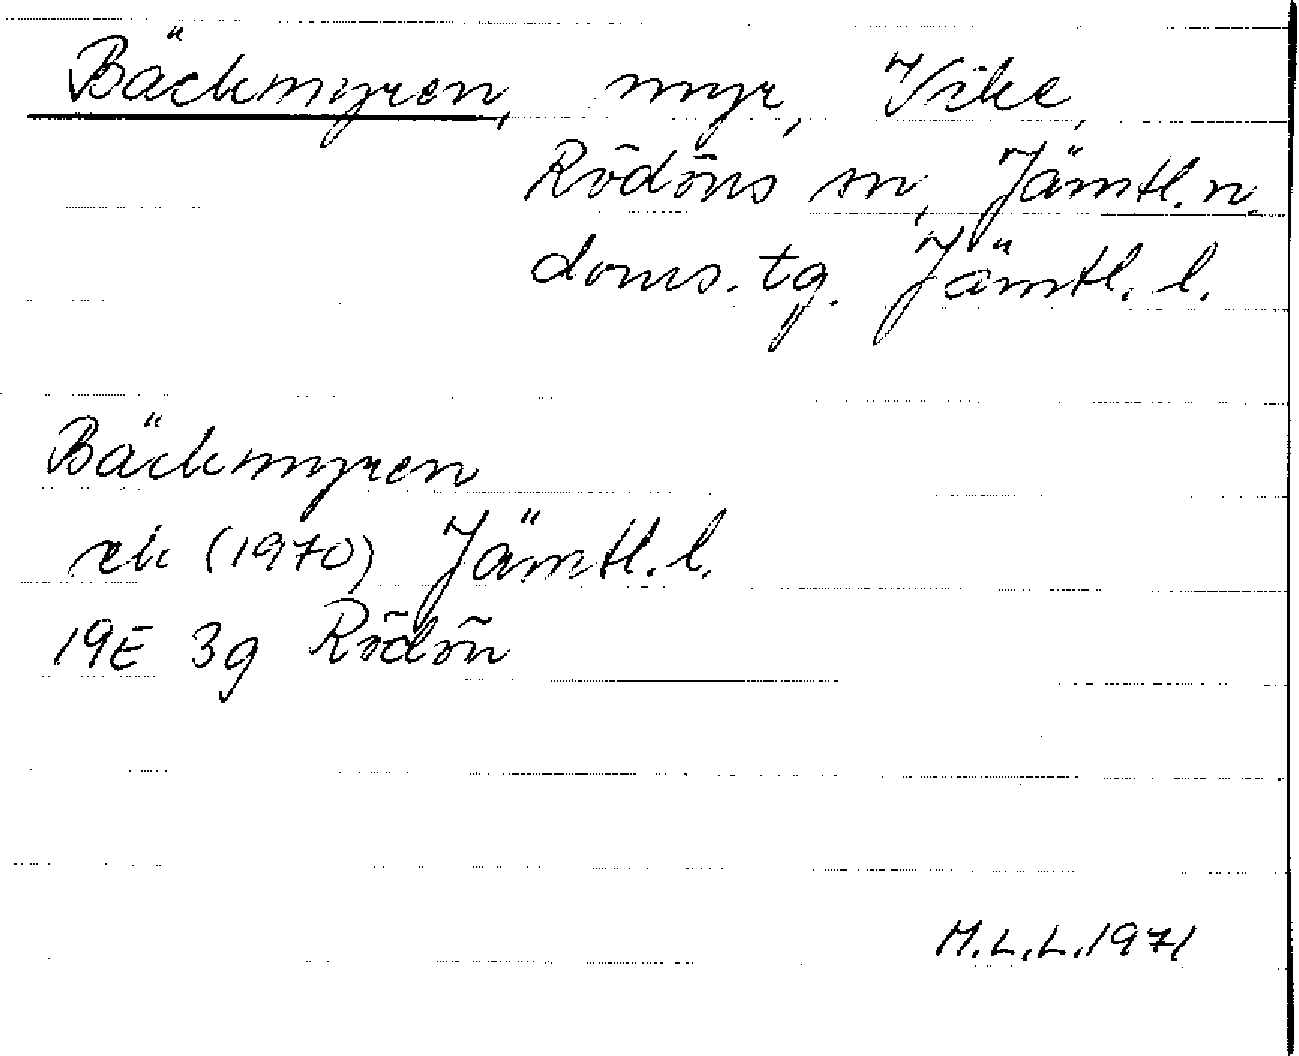 Bäckmyren, myr, Vike,
Rödöns sn, Jämtl. n.
doms. tg. Jämtl. l.
Bäckmyren
ek (1970) Jämtl. l.
19E 3g Rödön
M.L.L. 1971